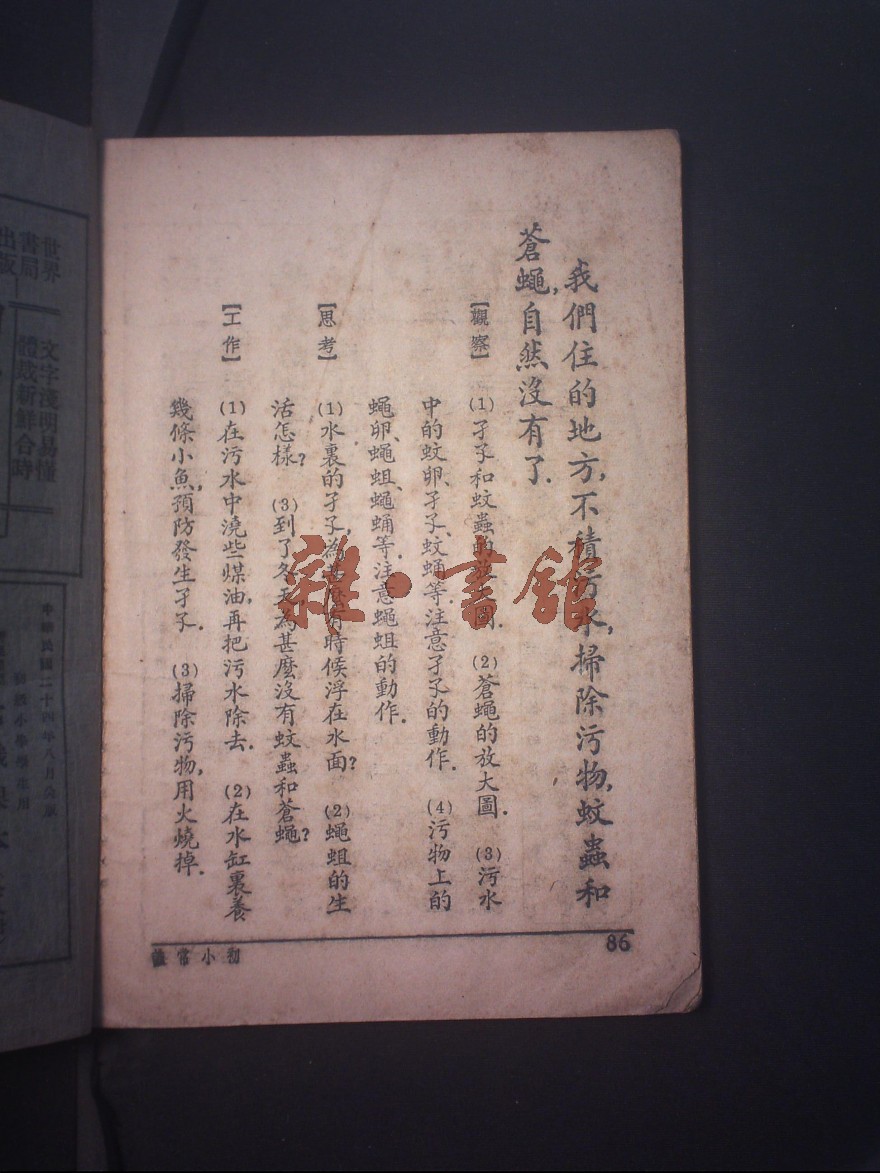 我們住的地方,不積污水,掃除污物,蚊蟲和
蒼蠅,自然沒有了.
【觀察】 (1)孑孓和蚊蟲的放大圖. (2)蒼蠅的放大圖. (3)污水
中的蚊卵、孑孓、蚊蛹等注意孑孓的動作. (4)污物上的
蠅卵、蠅蛆、蠅蛹等.注意蠅蛆的動作.
【思考】 (1)水裏的孑孓,為甚麼有時候浮在水面? (2)蠅蛆的生
活怎樣? (3)到了冬天,為甚麼沒有蚊蟲和蒼蠅?
【工作】 (1)在污水中澆些煤油,再把污水除去. (2)在水缸裏養
幾條小魚,預防發生孑孓. (3)掃除污物,用火燒掉.
86
初小常識
雜·書館
世界
書局
出版
文字淺明易懂
體裁新鮮合時
中華民國二十四年八月
初級小學學生用